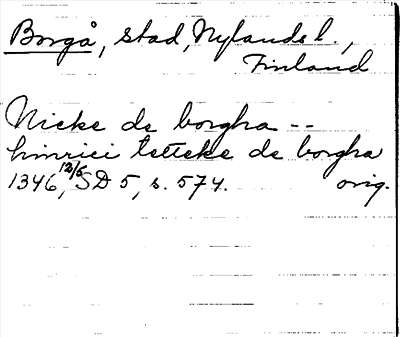 Borgå, stad, Nylands l.,
Finland
Nicke de borgha --
hinrici tetteke de borgha
1346 12/6, SD 5, s. 574. orig.